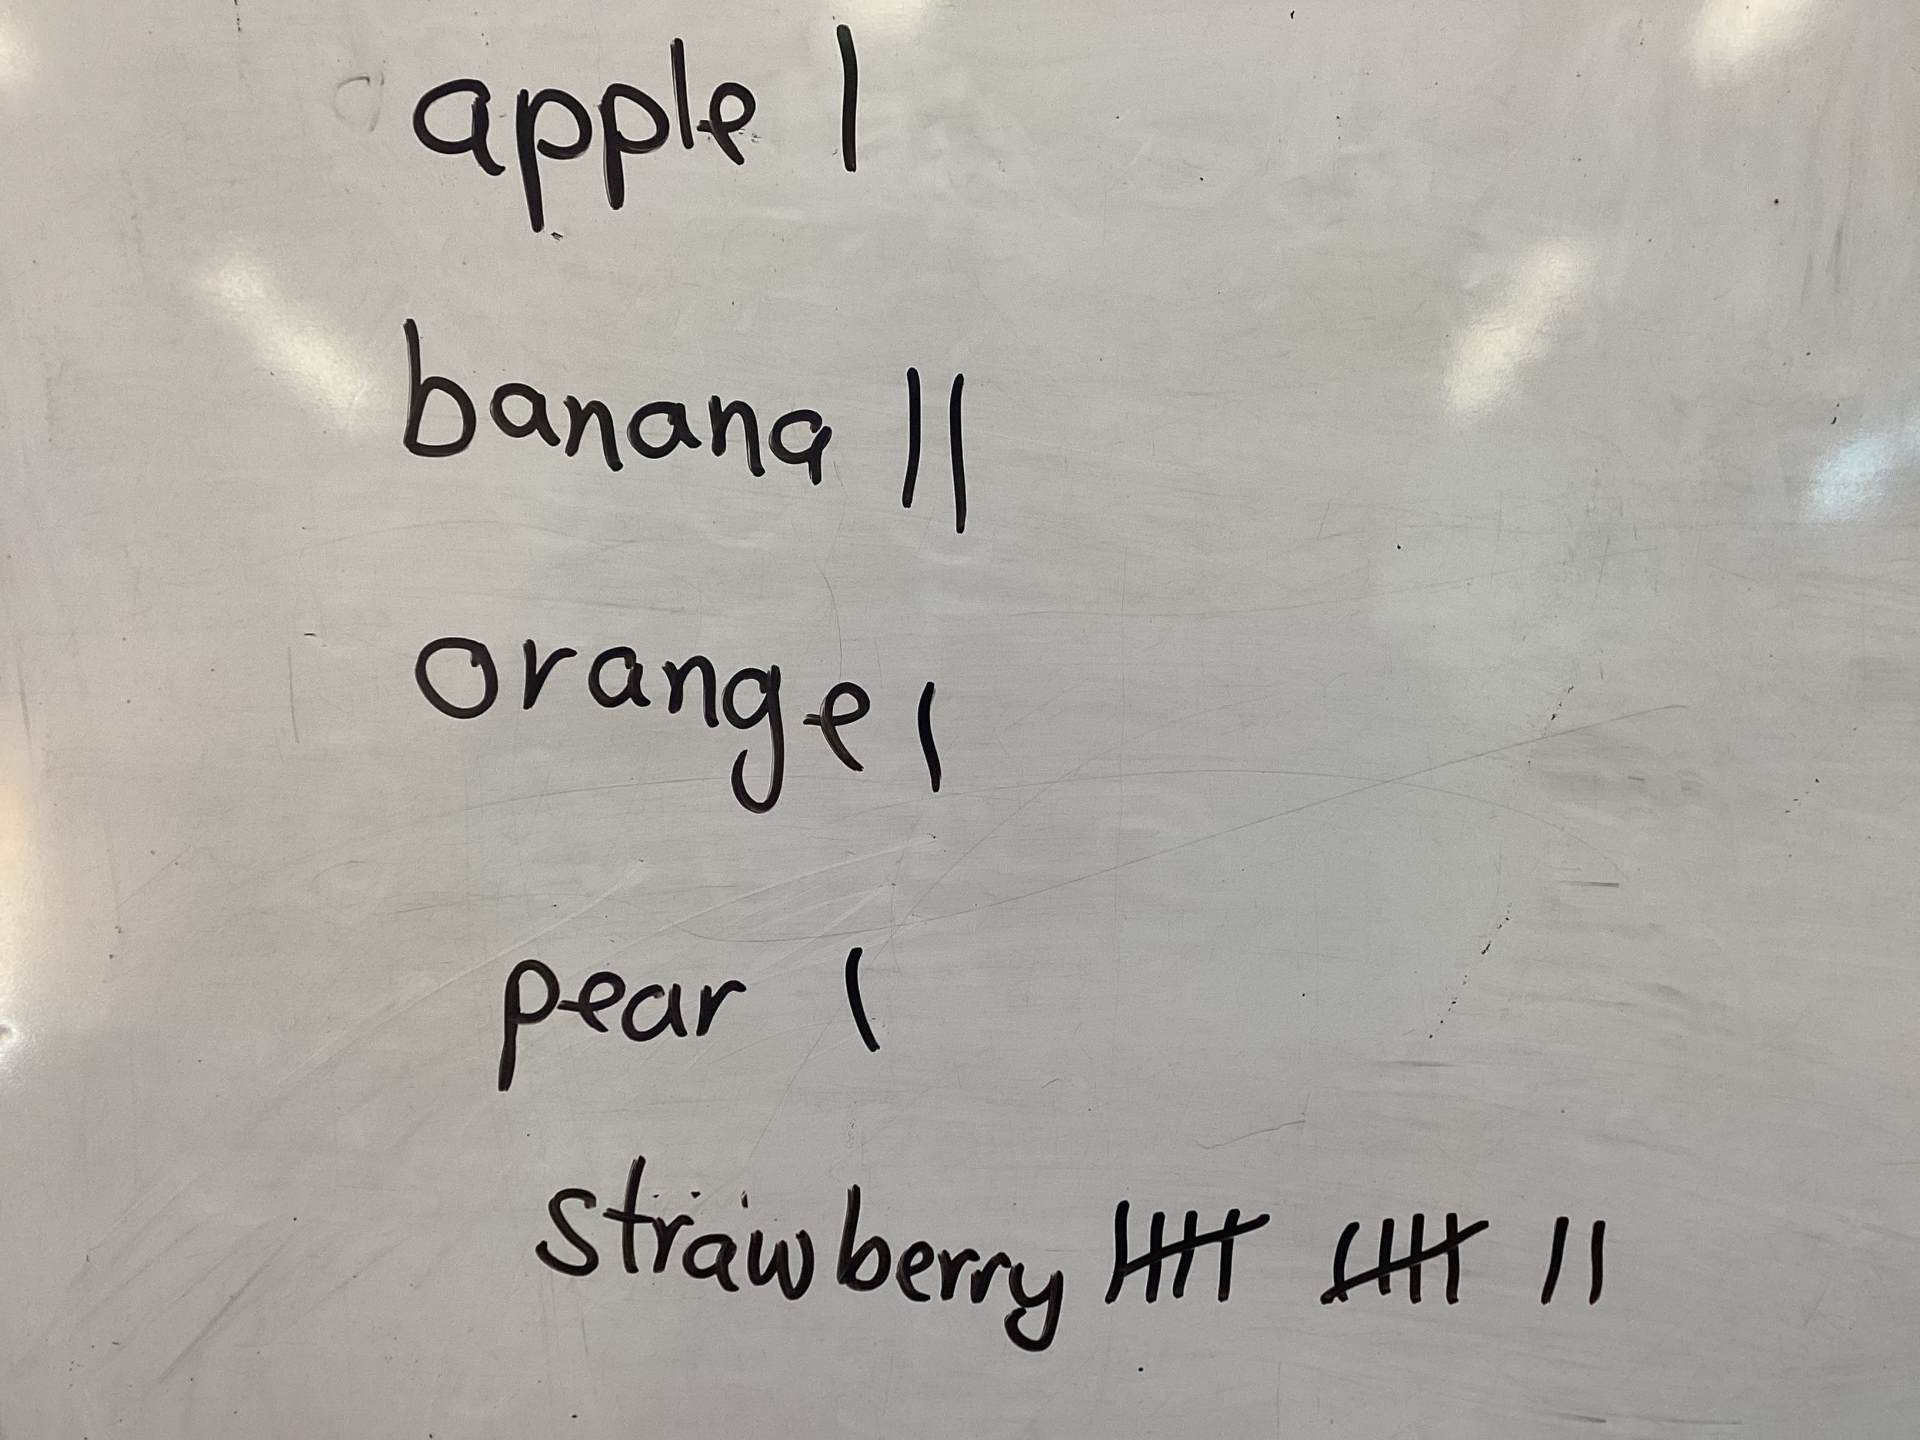 apple |
banana ||
orange |
pear |
strawberry 卌 卌 ||